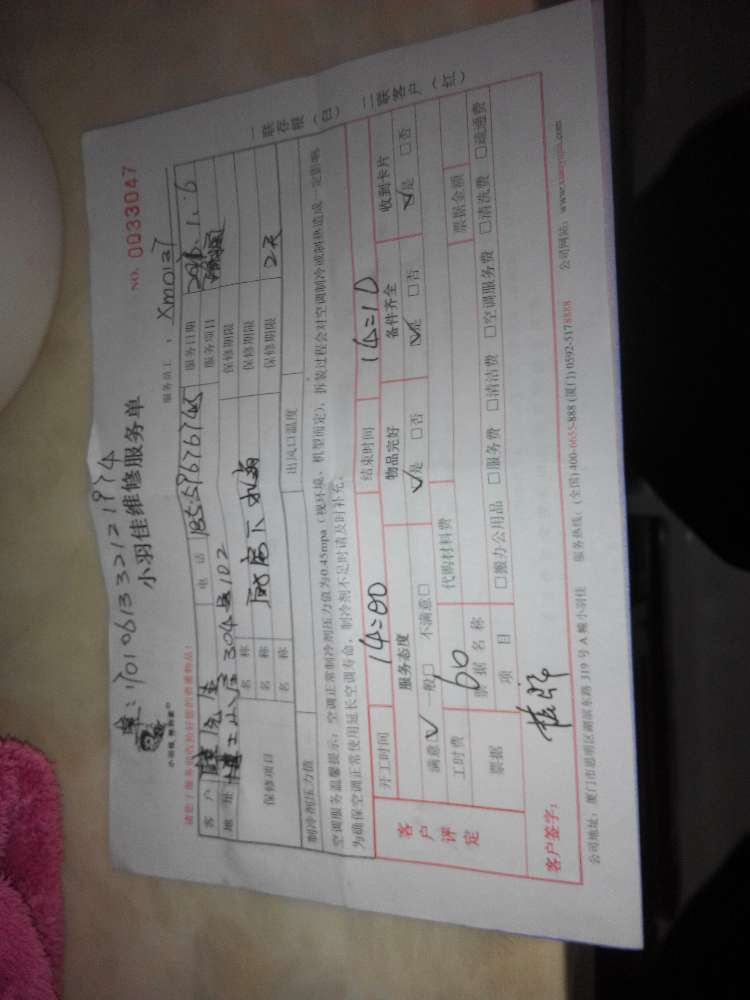 单:170106133212174
小羽佳维修服务单
NO. 0033047
小羽佳 找到家
服务员工: XM0137
客户
电话 18559676745
服务日期
地址 304号102
服务项目
保修项目
名称
保修期限
名称 厕所下水
保修期限
名称
保修期限 2天
制冷剂压力值
出风口温度
空调服务温馨提示:空调正常制冷剂压力值为0.45mpa(视环境、机型而定),拆装过程会对空调制冷或制热造成一定影响
为确保空调正常使用延长空调寿命,制冷剂不足时请及时补充。
一联存根(白) 二联客户(红)
客户评定
开工时间 14=00
结束时间 14=10
服务态度 物品完好 备件齐全 收到卡片
满意✓ 一般□ 不满意□ ☑是 □否 ☑是 □否 ☑是 □否
工时费 60 代购材料费 票据金额
票据 票据名称
项目 □搬办公用品 □服务费 □清洁费 □空调服务费 □清洗费 □疏通费
客户签字:
公司地址:厦门市思明区湖滨东路 319 号 A 幢小羽佳 服务热线:(全国)400-0655-888 (厦门)0592-5178888 公司网站:www.xiaoyujia.com